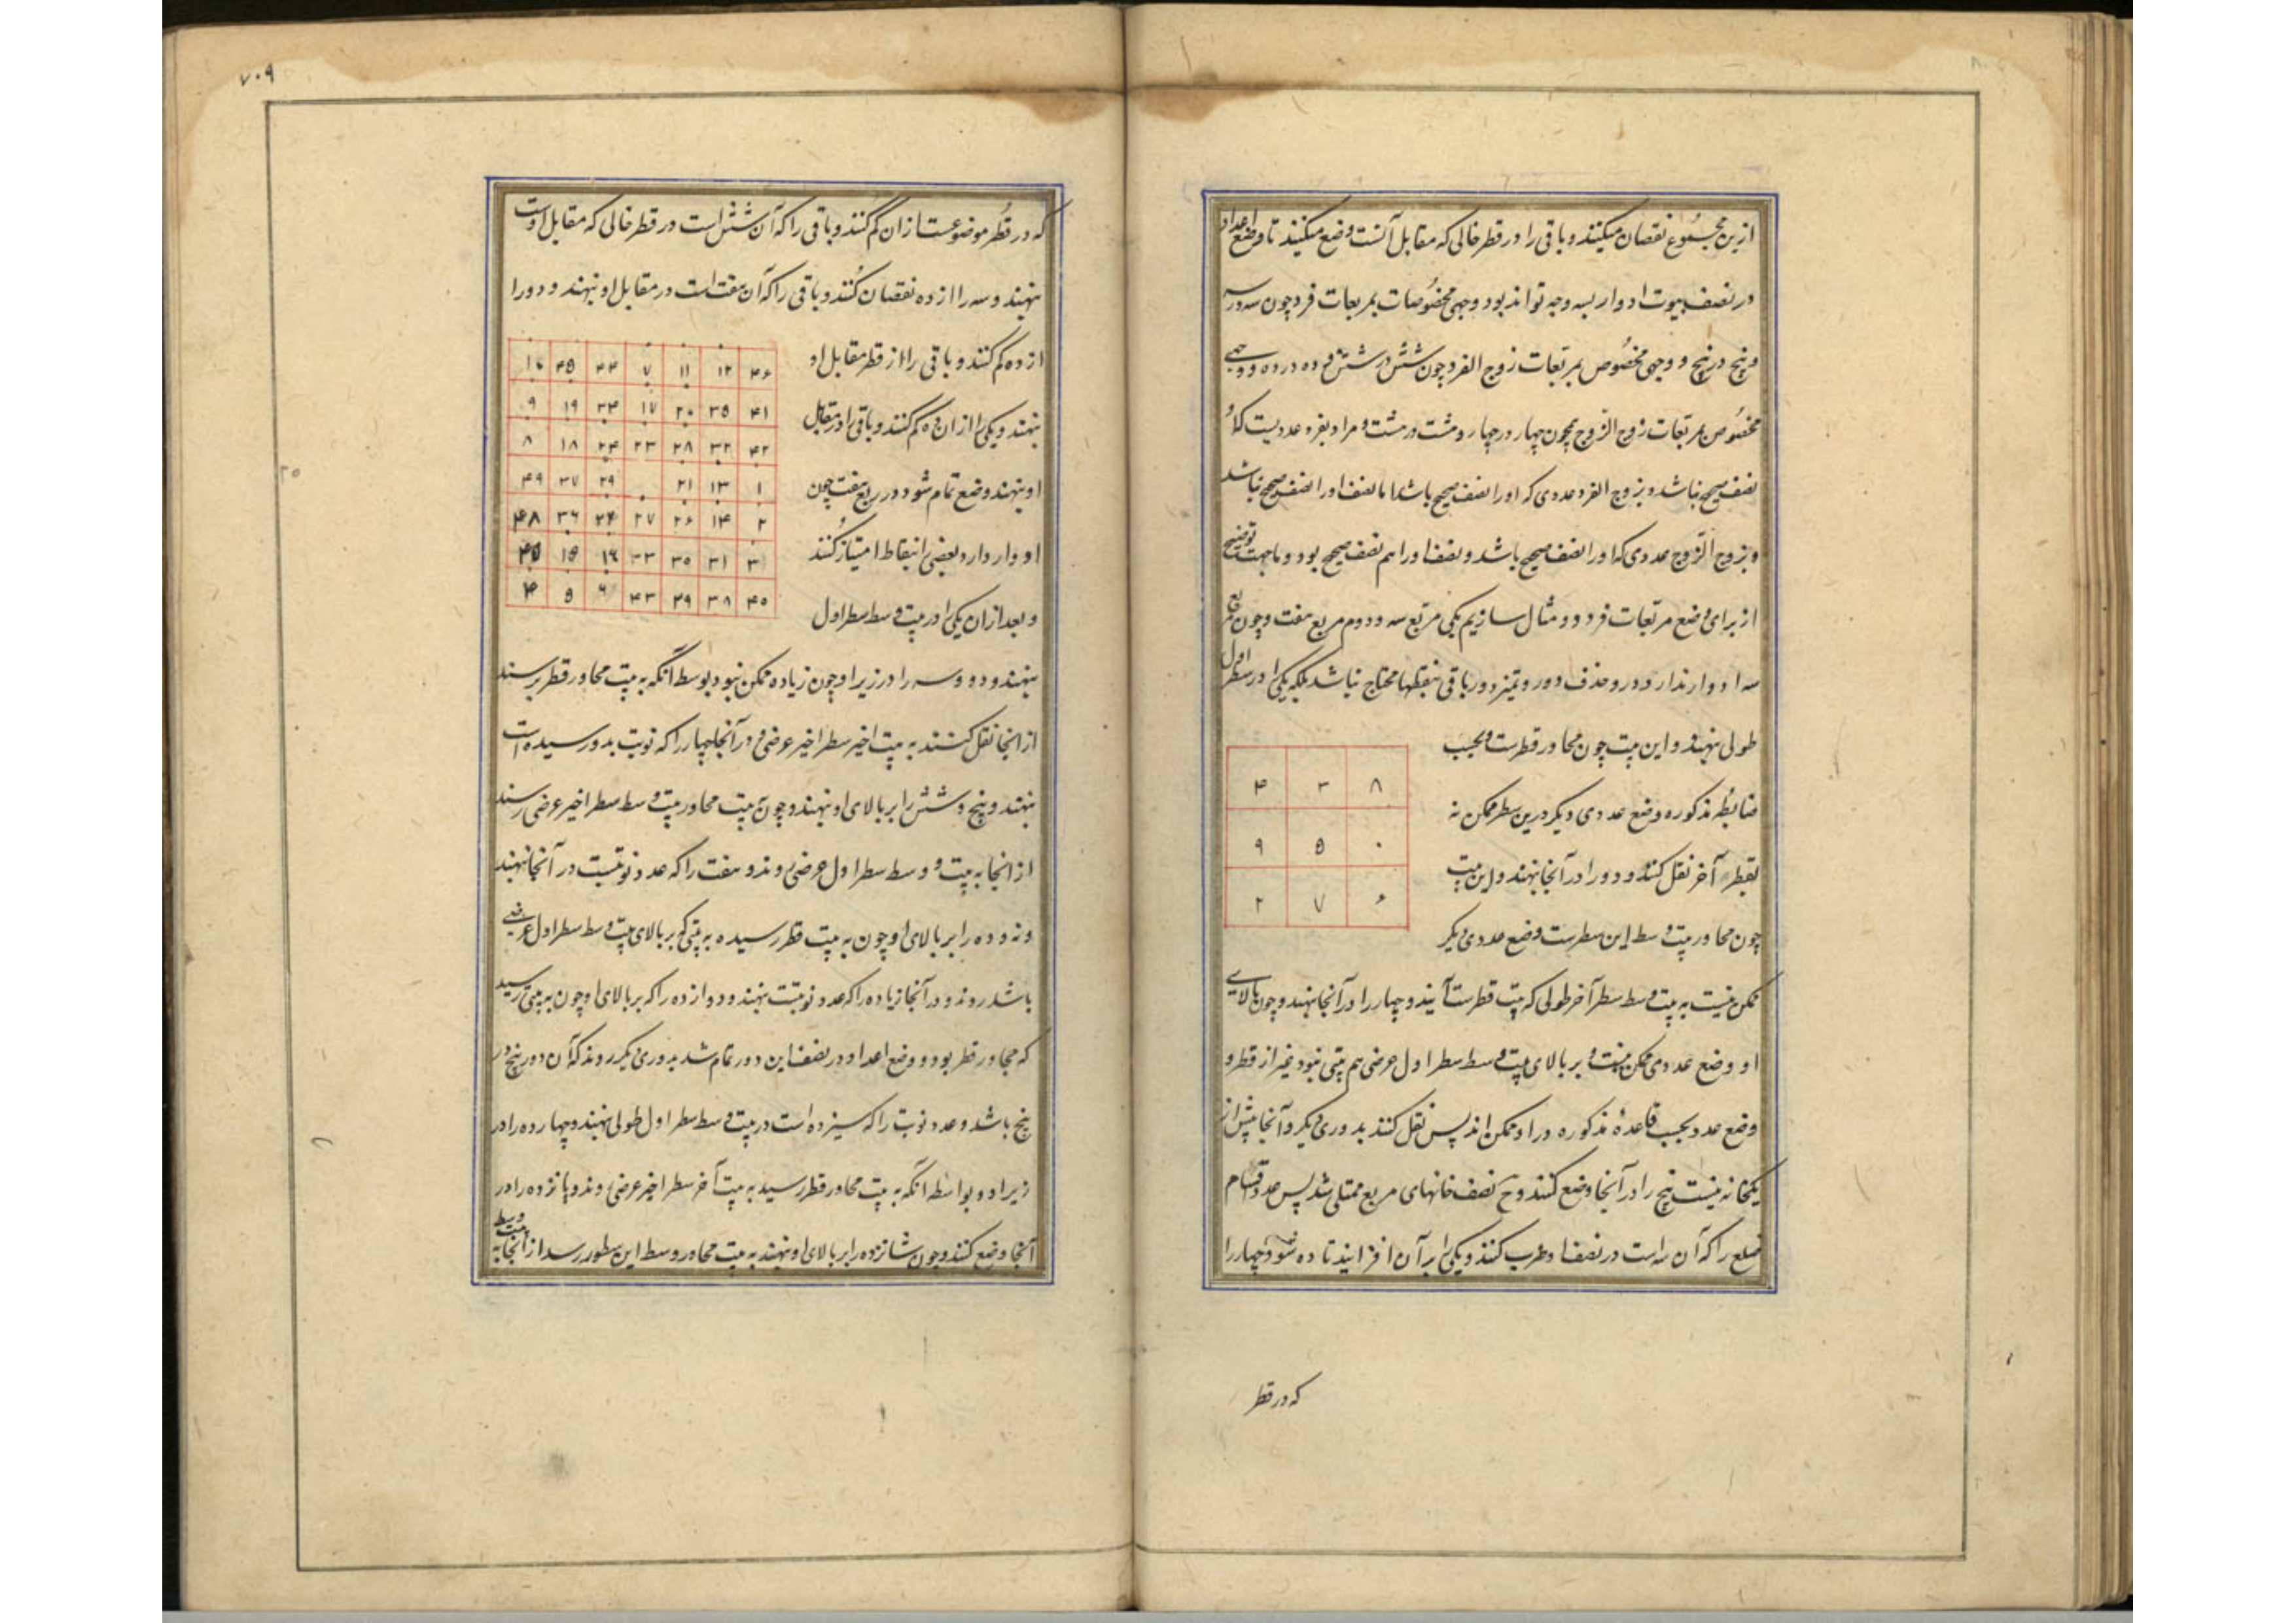 ازین مجموع نقصان میکنند و باقی را در قطر خالی که مقابل آنست وضع میکنند تا وضع اعداد
در نصف بیوت ادوار بسه وجه تواند بود وجهی مخصوصات بمربعات فرد چون سه در سه
و پنج در پنج و وجهی مخصوص بمربعات زوج الفرد چون شش در شش و ده در ده و وجهی
مخصوص بمربعات زوج الزوج همچون چهار در چهار و هشت در هشت و مراد بفرد عددیست که او را
نصف صحیح نباشد و بزوج الفرد عددی که او را نصف صحیح باشد اما نصف او را نصف صحیح نباشد
و بزوج الزوج عددی که او را نصف صحیح باشد و نصف او را هم نصف صحیح بود و ما بجهت توضیح
از برای وضع مربعات فرد دو مثال سازیم یکی مربع سه و دوم مربع هفت و چون مربع
سه ادوار ندارد و در حذف دور و تمیز دور باقی بنقطها محتاج نباشد بلکه یکی را در سطر اول
طولی نهند و این بیت چون مجاور قطرست و بحسب
ضابطه مذکوره وضع عددی دیگر درین سطر ممکن نه
بقطر آخر نقل کنند و دو را در آنجا نهند و این بیت
چون مجاور بیت وسط این سطرست وضع عددی دیگر
۴ ۳ ۸
۹ ۵ ۰
۲ ۷ ۶
ممکن نیست به بیت وسط سطر آخر طولی که بیت قطرست آیند و چهار را در آنجا نهند و چون بالای
او وضع عددی ممکن نیست و بر بالای بیت وسط سطر اول عرضی هم بیتی نبود غیر از قطر و
وضع عدد بحسب قاعدهٔ مذکوره در او ممکن اند پس نقل کنند بدوری دیگر و آنجا بیش از
یکخانه نیست پنج را در آنجا وضع کنند و ح نصف خانهای مربع ممتلی شد پس عدد اقسام
ضلع را که آن سه است در نصف او ضرب کنند و یکی بر آن افزایند تا ده شود و چهار را
که در قطر
۷۰۹
که در قطر موضوعست از آن کم کنند و باقی را که آن شش است در قطر خالی که مقابل اوست
نهند و سه را از ده نقصان کنند و باقی را که آن هفت است در مقابل او نهند و دو را
از ده کم کنند و باقی را از قطر مقابل او
نهند و یکی را از آن ده کم کنند و باقی را در مقابل
او نهند وضع تمام شود و در مربع هفت چون
ادوار دارد بعضی را بنقاط امتیاز کنند
و بعد از آن یکی را در بیت وسط سطر اول
۱۰ ۴۵ ۴۴ ۷ ۱۱ ۱۲ ۴۶
۹ ۱۹ ۳۴ ۱۷ ۲۰ ۳۵ ۴۱
۸ ۱۸ ۲۴ ۲۳ ۲۸ ۳۲ ۴۲
۴۹ ۳۷ ۲۹ ۰ ۲۱ ۱۳ ۱
۴۸ ۳۶ ۲۴ ۲۷ ۲۶ ۱۴ ۲
۴۵ ۱۵ ۱۶ ۳۳ ۳۰ ۳۱ ۳
۴ ۵ ۶ ۴۳ ۳۹ ۳۸ ۴۰
نهند و دو و سه را در زیر او چون زیاده ممکن نبود بوسط آنکه به بیت مجاور قطر برسند
از آنجا نقل کنند به بیت اخیر سطر اخیر عرضی و در آنجا چهار را که نوبت بدو رسیده است
نهند و پنج و شش را بر بالای او نهند و چون به بیت مجاور بیت وسط سطر اخیر عرضی رسند
از آنجا به بیت وسط سطر اول عرضی روند و هفت را که عدد نوبتست در آنجا نهند
و نه و ده را بر بالای او چون به بیت قطر رسیده به بیتی که بر بالای بیت وسط سطر اول عرضی
باشد روند و در آنجا زیاده را که عدد نوبتست نهند و دوازده را که بر بالای او چون به بیتی رسید
که مجاور قطر بود و وضع اعداد در نصف این دور تمام شد بدوری دیگر روند که آن دور پنج در
پنج باشد و عدد نوبت را که سیزده است در بیت وسط سطر اول طولی نهند و چهارده را در
زیر او و بواسطه آنکه به بیت مجاور قطر رسید به بیت آخر سطر اخیر عرضی روند و پانزده را در
آنجا وضع کنند و چون شانزده را بر بالای او نهند به بیت مجاور وسط این سطور رسد از آنجا به بیت وسط